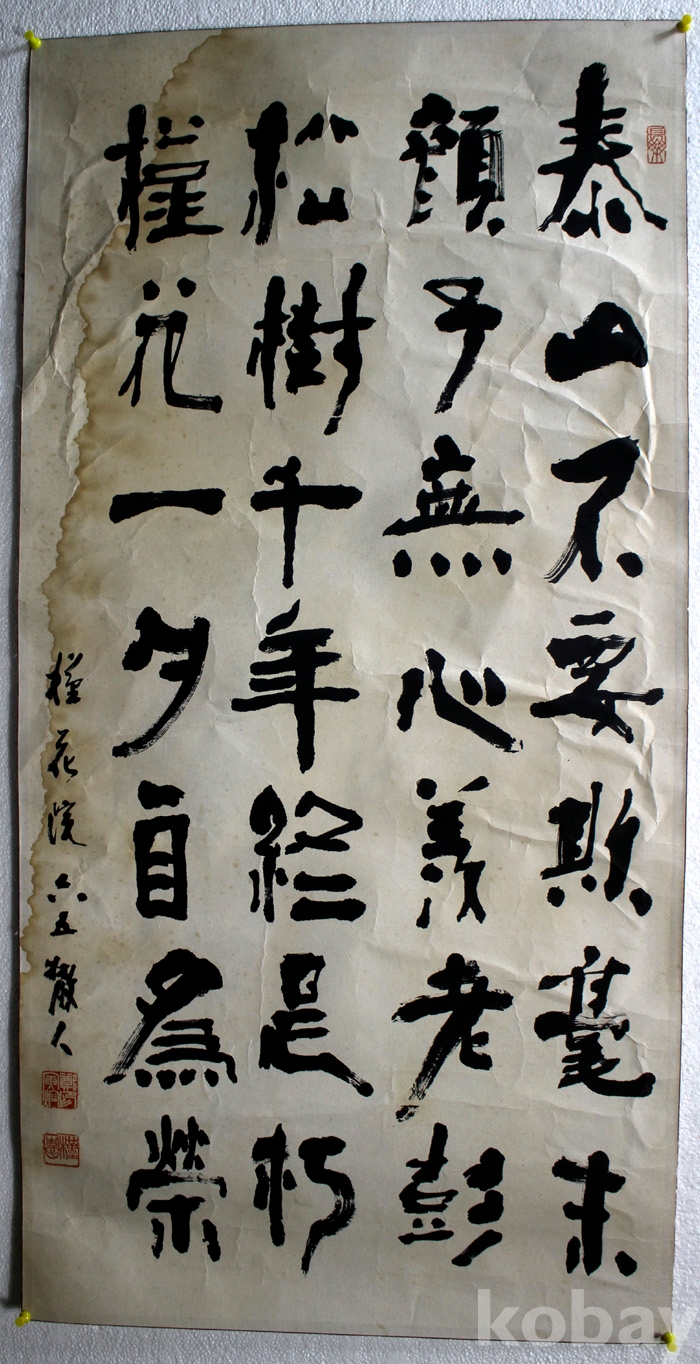 泰山不要欺毫末
顔子無心羨老彭
松樹千年終是朽
槿花一夕自爲榮
槿花院 六五散人
kobay